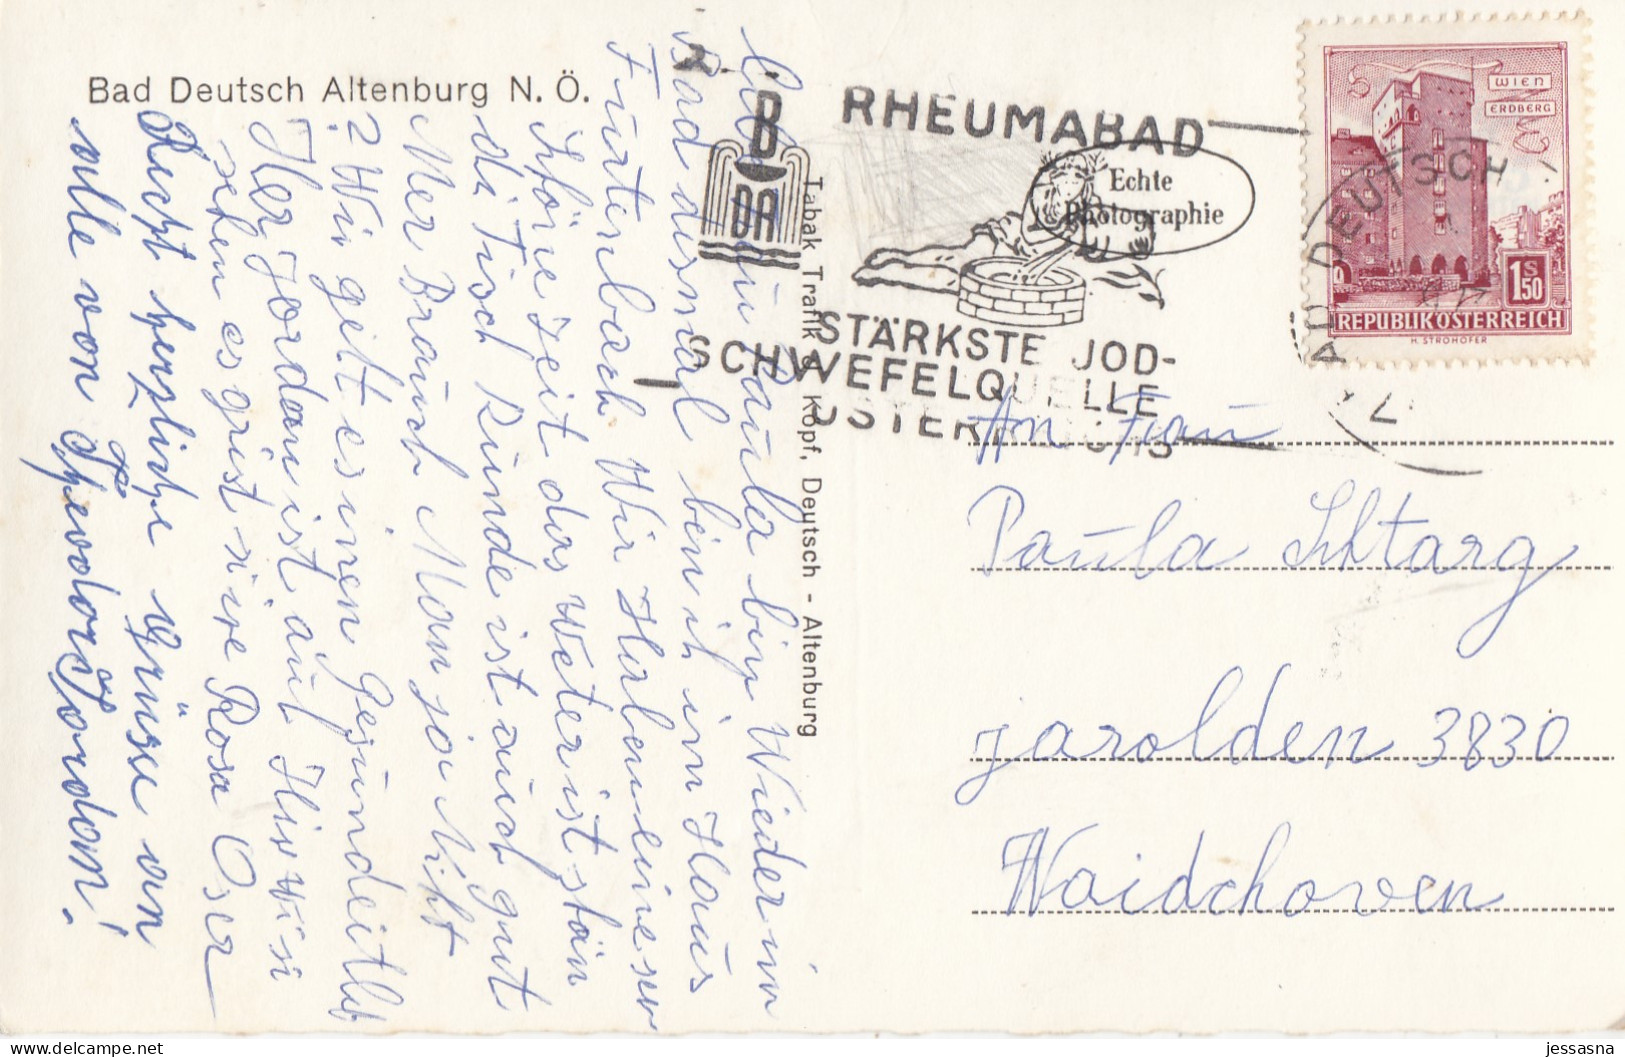 Bad Deutsch Altenburg N. Ö.
B
DA
RHEUMABAD
STÄRKSTE JOD-
SCHWEFELQUELLE
ÖSTERREICHS
Echte
Photographie
WIEN
ERDBERG
1 S 50
REPUBLIK ÖSTERREICH
H. STROHOFER
BAD DEUTSCH
Tabak Trafik Kopf, Deutsch - Altenburg
An Frau
Paula Schtarg
Jarolden 3830
Waidchoven
Paula bin Wieder im
Bad desmal bin ich im Haus
Furtenbach Wir Haben einen
schöne Zeit das Weter ist schön
di Tisch Runde ist auch gut
Mer Brauch Man ja Nicht
? Wir geht es inen Gesundeitlich
Her Jordan ist auch Hir Wir
sehen es grist sie ire Rosa Oser
Recht herzliche Grüsse an
alle von Theodor Jordan!